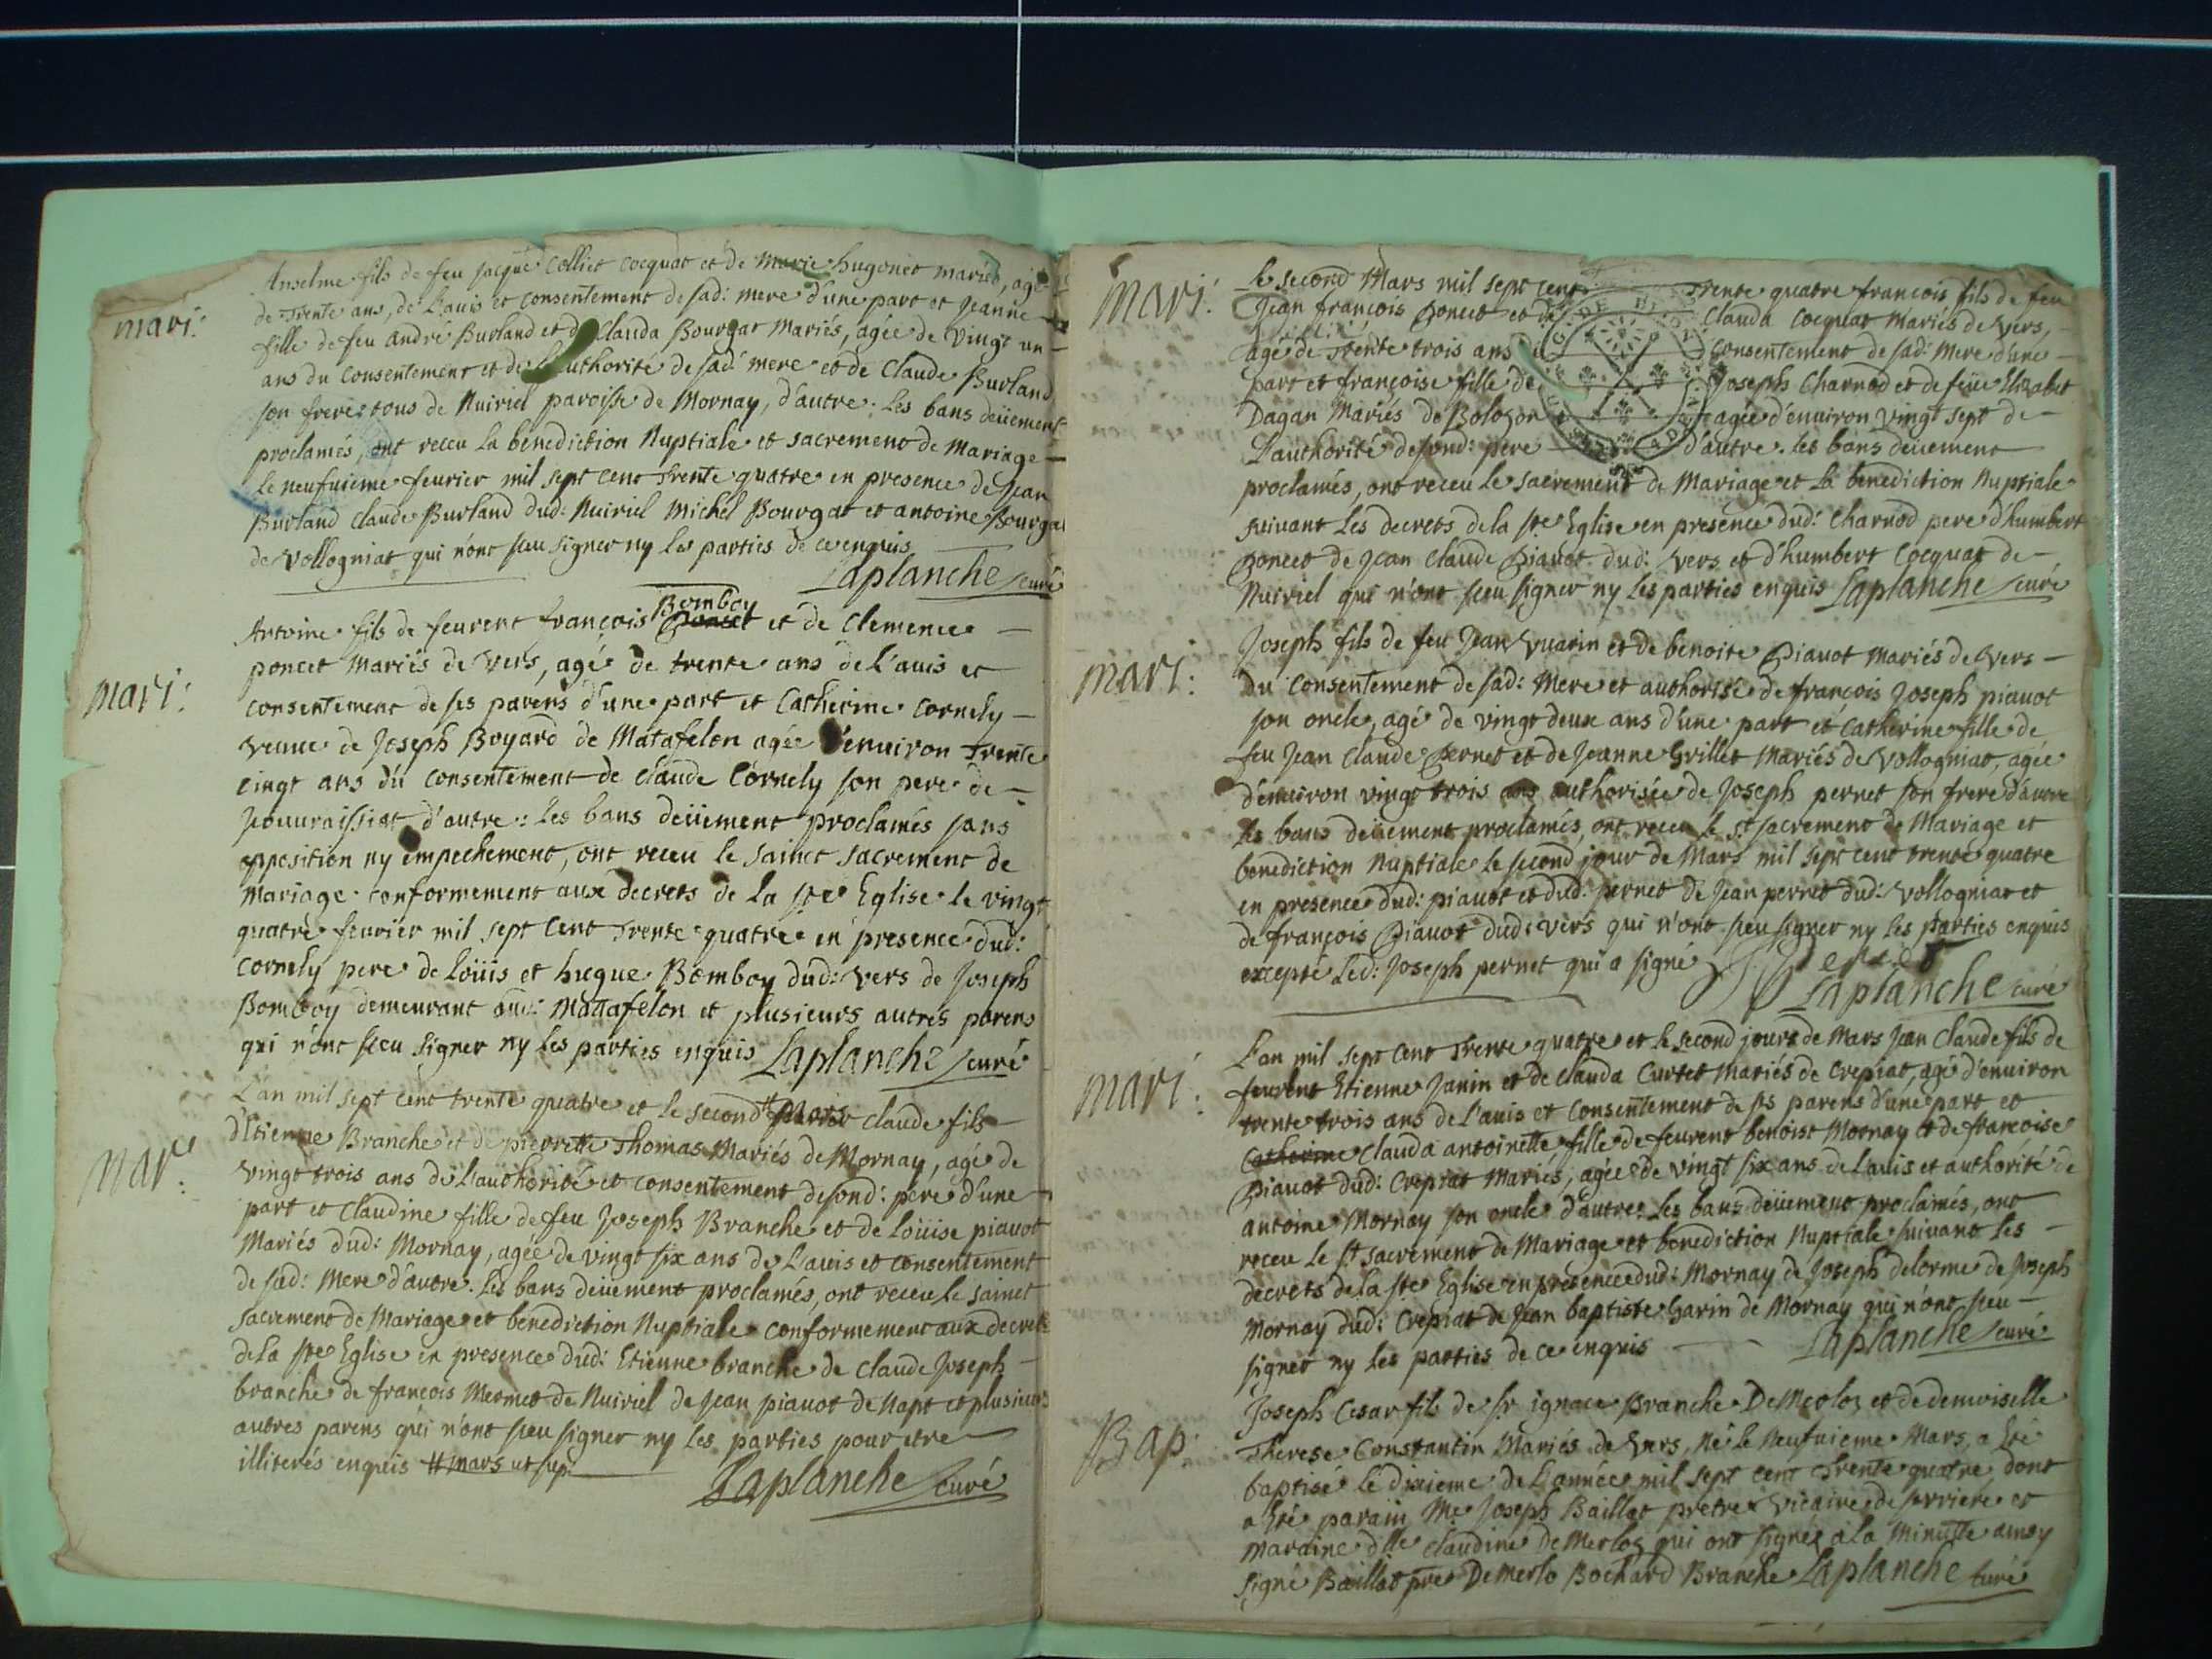 mari:
Anselme fils de feu jacque Colliet cocquat et de Marie hugonet mariés, agé
de trente ans, de L'auis et consentement de sad: mere d'une part et Jeanne
fille de feu andré Burland et de Clauda Bourgat Mariés, agée de vingt un
ans du consentement et de L'authorité de sad: mere et de Claude Burland
son frere tous de Nuiriel paroisse de Mornay, d'autre: Les bans deüement
proclamés, ont receu la benediction Nuptiale et sacrement de Mariage
le neufuieme feurier mil sept cent trente quatre en presence de Jean
Burland Claude Burland dud: Nuiriel Michel Bourgat et antoine Bourgat
de Vollogniat qui n'ont sceu signer ny les parties de ce enquis
Laplanche curé
mari:
Bomboy
Antoine fils de feurent françois Poncet et de Clemence
poncet Mariés de Vers, agé de trente ans de l'auis et
consentement de ses parens d'une part et Catherine Cornely
veuue de Joseph Boyard de Matafelon agée d'enuiron trente
cinqt ans du consentement de Claude Cornely son pere de
d'autre: Les bans deüement proclamés sans
opposition ny empechement, ont receu le sainct sacrement de
Mariage conformement aux decrets de la ste Eglise le vingt
quatre feurier mil sept cent trente quatre en presence dud:
Cornely pere de Loüis et hugue Bomboy dud: Vers de Joseph
Bomboy demeurant aud: Matafelon et plusieurs autres parens
qui n'ont sceu signer ny les parties enquis Laplanche curé
Mar:
L'an mil sept cent trente quatre et le second # Claude fils
d'Etienne Branche et de pierrette Thomas Mariés de Mornay, agé de
vingt trois ans de L'authorité et consentement de sond: pere d'une
part et Claudine fille de feu Joseph Branche et de Loüise piauot
Mariés dud: Mornay, agée de vingt six ans de L'auis et consentement
de sad: Mere d'autre. Les bans deuement proclamés, ont receu le sainct
Sacrement de Mariage et benediction Nuptiale conformement aux decrets
de la ste Eglise en presence dud: Etienne branche de Claude Joseph
branche de françois Mermet de Nuiriel de Jean piauot de Napt et plusieurs
autres parens qui n'ont sceu signer ny les parties pour etre
illiterés enquis # mars ut sup:
Laplanche curé
Mari:
Le second Mars mil sept cent trente quatre françois fils de feu
Jean françois Poncet et de Clauda Cocquat mariés de Vers,
agé de trente trois ans du consentement de sad: Mere d'une
part et françoise fille de Joseph Charnod et de feüe Elizabet
Dagan Mariés de Bolozon agée d'enuiron vingt sept de
L'authorité de sond: pere d'autre. les bans deuement
proclamés, ont receu le sacrement de Mariage et la benediction Nuptiale
suivant Les decrets de la ste Eglise en presence dud: Charnod pere d'humbert
Poncet de Jean Claude Piauot dud: Vers et d'humbert Cocquat de
Nuiriel qui n'ont sceu signer ny les parties enquis Laplanche curé
mari:
Joseph fils de feu Jean Vuarin et de benoite Piauot Mariés de Vers
du consentement de sad: Mere et authorisé de françois Joseph piauot
son oncle, agé de vingt deux ans d'une part et Catherine fille de
feu Jean Claude Pernet et de Jeanne Grillet Mariés de Vollogniat, agée
d'enuiron vingt trois ans authorisée de Joseph pernet son frere d'autre
les bans deüement proclamés, ont receu le st sacrement de Mariage et
benediction Nuptiale le second jour de Mars mil sept cent trente quatre
en presence dud: piauot et dud: pernet de Jean pernet dud: Vollogniat et
de françois Piauot dud: vers qui n'ont sceu signer ny les parties enquis
excepté Led: Joseph pernet qui a signé
Laplanche curé
mari:
L'an mil sept cent trente quatre et le second jour de Mars Jean Claude fils de
feurent Etienne Janin et de Clauda Curtet mariés de Crepiat, agé d'enuiron
trente trois ans de L'auis et consentement de ses parens d'une part et
Catherine Clauda antoinette fille de feurent benoist Mornay et de françoise
Piauot dud: Crepiat Mariés, agée de vingt six ans de L'auis et authorité de
antoine Mornay son oncle d'autre. Les bans deüement proclamés, ont
receu le st sacrement de Mariage et benediction Nuptiale suivant les
decrets de la ste Eglise en presence dud: Mornay de Joseph delorme de Joseph
Mornay dud: Crepiat de Jean baptiste Garin de Mornay qui n'ont sceu
signer ny les parties de ce enquis Laplanche curé
Bap:
Joseph Cesar fils de sr ignace Branche De Merloz et de demoiselle
Therese Constantin Mariés de Vers, Né le Neufuieme Mars, a été
baptisé le dixieme de L'année mil sept cent trente quatre dont
a été parain Me Joseph Baillat pretre vicaire de serriere et
maraine dlle Claudine De Merloz qui ont signés a la Minutte ainsy
signé Baillat pre De Merlo Bochard Branche Laplanche curé